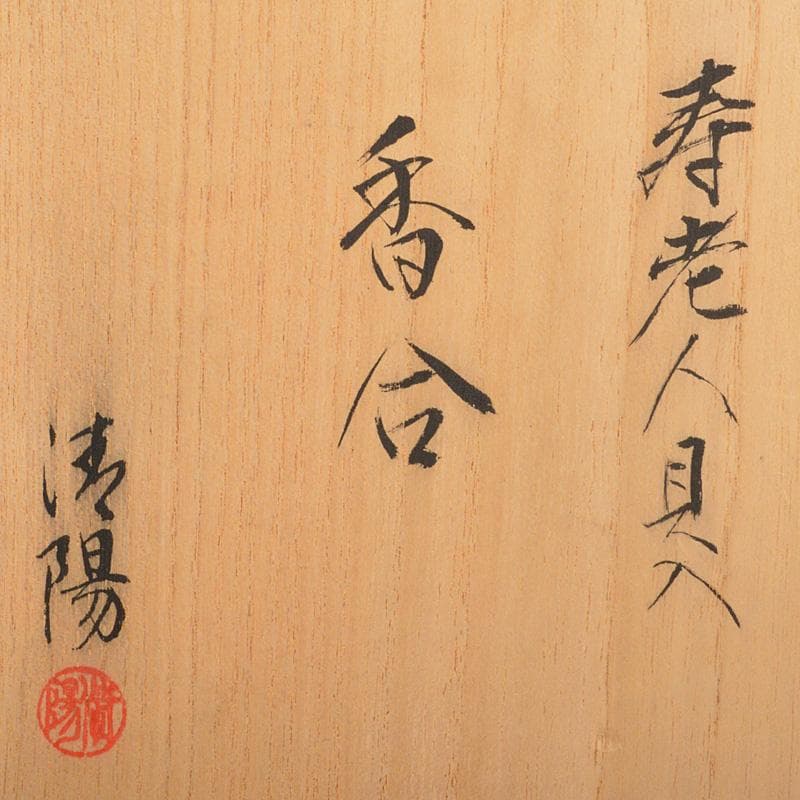 寿老人貝入
香合
清陽
清陽